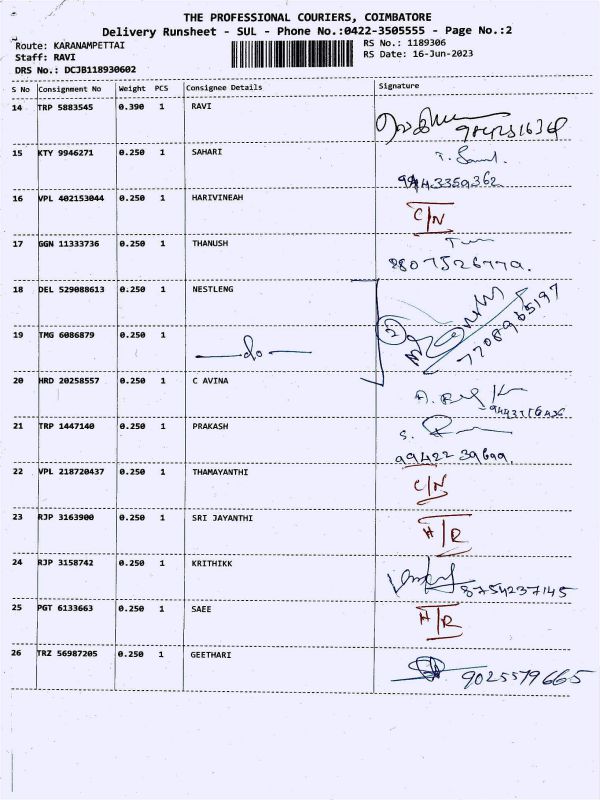 THE PROFESSIONAL COURIERS, COIMBATORE
Delivery Runsheet - SUL - Phone No.:0422-3505555 - Page No.:2
Route: KARANAMPETTAI RS No.: 1189306
Staff: RAVI RS Date: 16-Jun-2023
DRS No.: DCJB118930602
S No Consignment No Weight PCS Consignee Details Signature
14 TRP 5883545 0.390 1 RAVI
15 KTY 9946271 0.250 1 SAHARI
9443359362
16 VPL 402153044 0.250 1 HARIVINEAH C/N
17 GGN 11333736 0.250 1 THANUSH
8807526779.
18 DEL 529088613 0.250 1 NESTLENG
7708965197
19 TMG 6086879 0.250 1 do 2
20 HRD 20258557 0.250 1 C AVINA
21 TRP 1447140 0.250 1 PRAKASH
9942239699.
22 VPL 218720437 0.250 1 THAMAYANTHI C/N
23 RJP 3163900 0.250 1 SRI JAYANTHI H/R
24 RJP 3158742 0.250 1 KRITHIKK 8754237145
25 PGT 6133663 0.250 1 SAEE H/R
26 TRZ 56987205 0.250 1 GEETHARI 9025579665